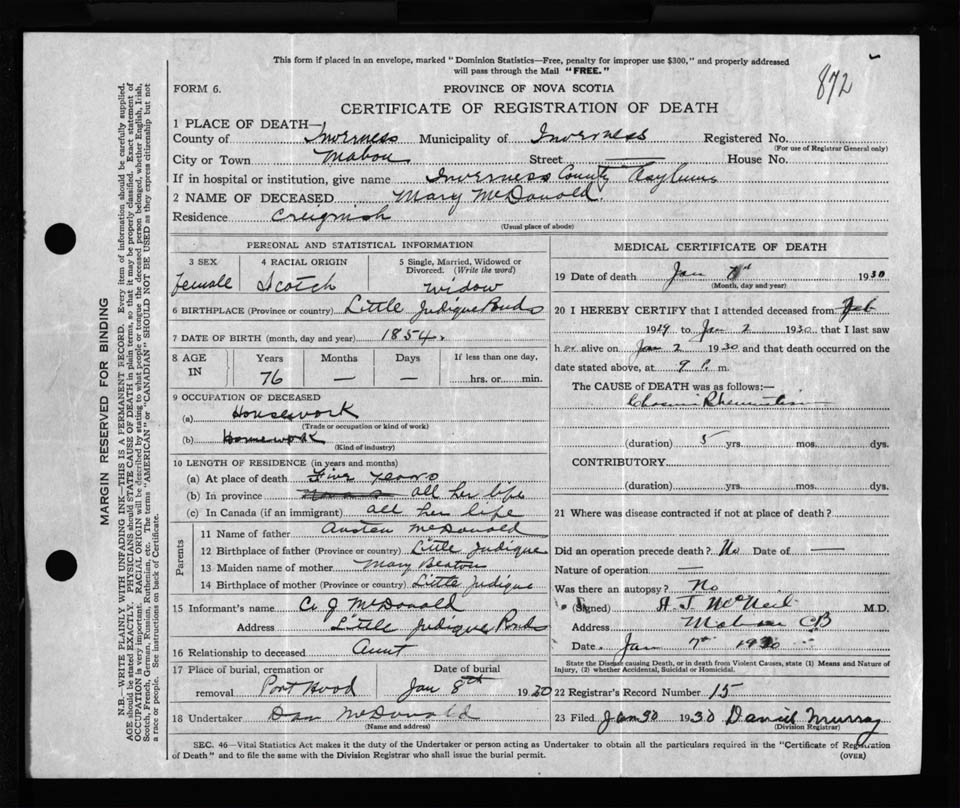 This form if placed in an envelope, marked "Dominion Statistics—Free, penalty for improper use $300," and properly addressed
will pass through the Mail "FREE."
872
FORM 6.
PROVINCE OF NOVA SCOTIA
CERTIFICATE OF REGISTRATION OF DEATH
MARGIN RESERVED FOR BINDING
N.B.—WRITE PLAINLY WITH UNFADING INK—THIS IS A PERMANENT RECORD. Every item of information should be carefully supplied.
AGE should be stated EXACTLY. PHYSICIANS should STATE CAUSE OF DEATH in plain terms, so that it may be properly classified. Exact statement of
OCCUPATION is very important. RACIAL ORIGIN will be described by stating to what people or tongue the deceased person belonged, whether English, Irish,
Scotch, French, German, Russian, Ruthenian, etc. The terms "AMERICAN" or "CANADIAN" SHOULD NOT BE USED as they express citizenship but not
a race or people. See instructions on back of Certificate.
1 PLACE OF DEATH—
County of Inverness Municipality of Inverness Registered No.
(For use of Registrar General only)
City or Town Mabou Street — House No.
If in hospital or institution, give name Inverness County Asylum
2 NAME OF DECEASED Mary McDonald.
Residence Creignish
(Usual place of abode)
PERSONAL AND STATISTICAL INFORMATION
3 SEX 4 RACIAL ORIGIN 5 Single, Married, Widowed or
Divorced. (Write the word)
female Scotch widow
6 BIRTHPLACE (Province or country) Little Judique Ponds
7 DATE OF BIRTH (month, day and year) 1854.
8 AGE IN Years Months Days If less than one day,
76 — — hrs. or min.
9 OCCUPATION OF DECEASED
(a) Housework
(Trade or occupation or kind of work)
(b) Homework
(Kind of industry)
10 LENGTH OF RESIDENCE (in years and months)
(a) At place of death Five years
(b) In province all her life
(c) In Canada (if an immigrant) all her life
Parents
11 Name of father Austen McDonald
12 Birthplace of father (Province or country) Little Judique
13 Maiden name of mother Mary Beaton
14 Birthplace of mother (Province or country) Little Judique
15 Informant's name A J McDonald
Address Little Judique Ponds
16 Relationship to deceased Aunt
17 Place of burial, cremation or Date of burial
removal Port Hood Jan 8th 1930
18 Undertaker Dan McDonald
(Name and address)
MEDICAL CERTIFICATE OF DEATH
19 Date of death Jan 1930
(Month, day and year)
20 I HEREBY CERTIFY that I attended deceased from Feb
1929 to Jan 2 1930 that I last saw
her alive on Jan 2 1930 and that death occurred on the
date stated above, at 9 P. m.
The CAUSE OF DEATH was as follows:—
Chronic Rheumatism
(duration) 5 yrs. mos. dys.
CONTRIBUTORY
(duration) yrs. mos. dys.
21 Where was disease contracted if not at place of death?
Did an operation precede death? No Date of —
Nature of operation —
Was there an autopsy? No
(Signed) A J McNeil M.D.
Address Mabou CB
Date Jan 7th 1930
State the Disease causing Death, or in death from Violent Causes, state (1) Means and Nature of
Injury, (2) whether Accidental, Suicidal or Homicidal.
22 Registrar's Record Number 15
23 Filed Jan 30 1930 Daniel Murray
(Division Registrar)
SEC. 46—Vital Statistics Act makes it the duty of the Undertaker or person acting as Undertaker to obtain all the particulars required in the "Certificate of Registration
of Death" and to file the same with the Division Registrar who shall issue the burial permit.
(OVER)